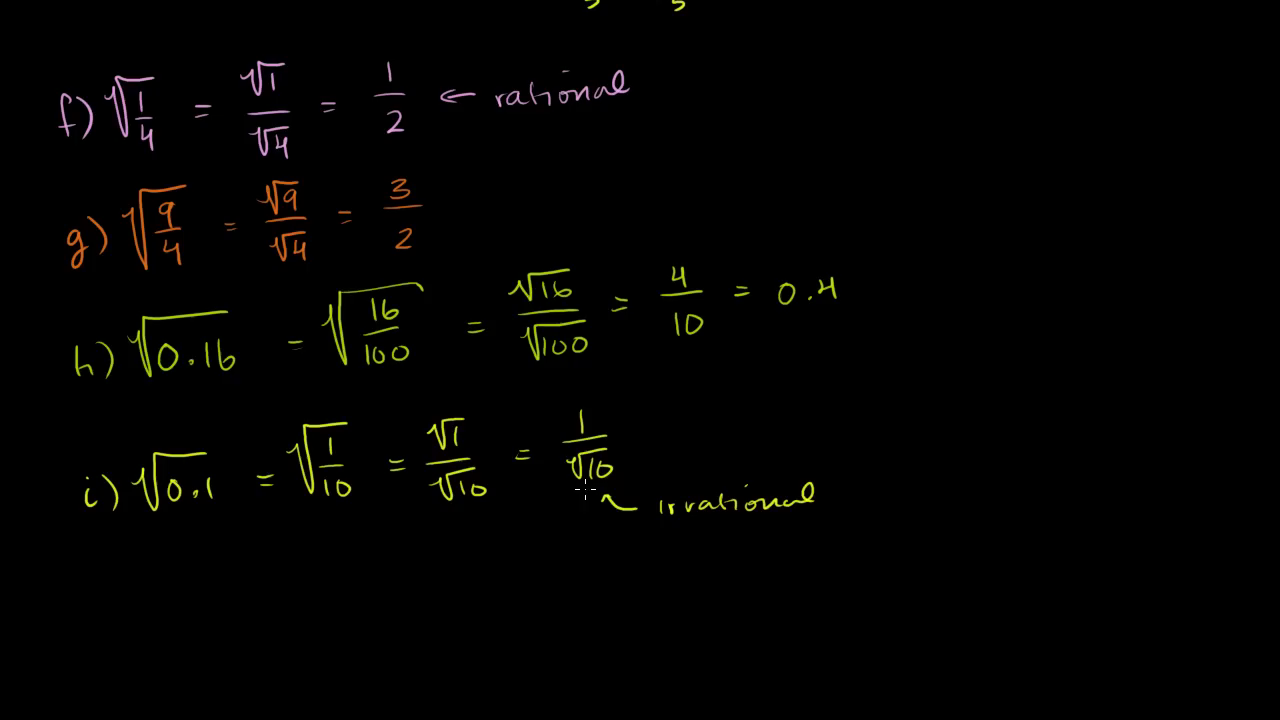 f) √(1/4) = √1/√4 = 1/2 ← rational
g) √(9/4) = √9/√4 = 3/2
h) √0.16 = √(16/100) = √16/√100 = 4/10 = 0.4
i) √0.1 = √(1/10) = √1/√10 = 1/√10
irrational